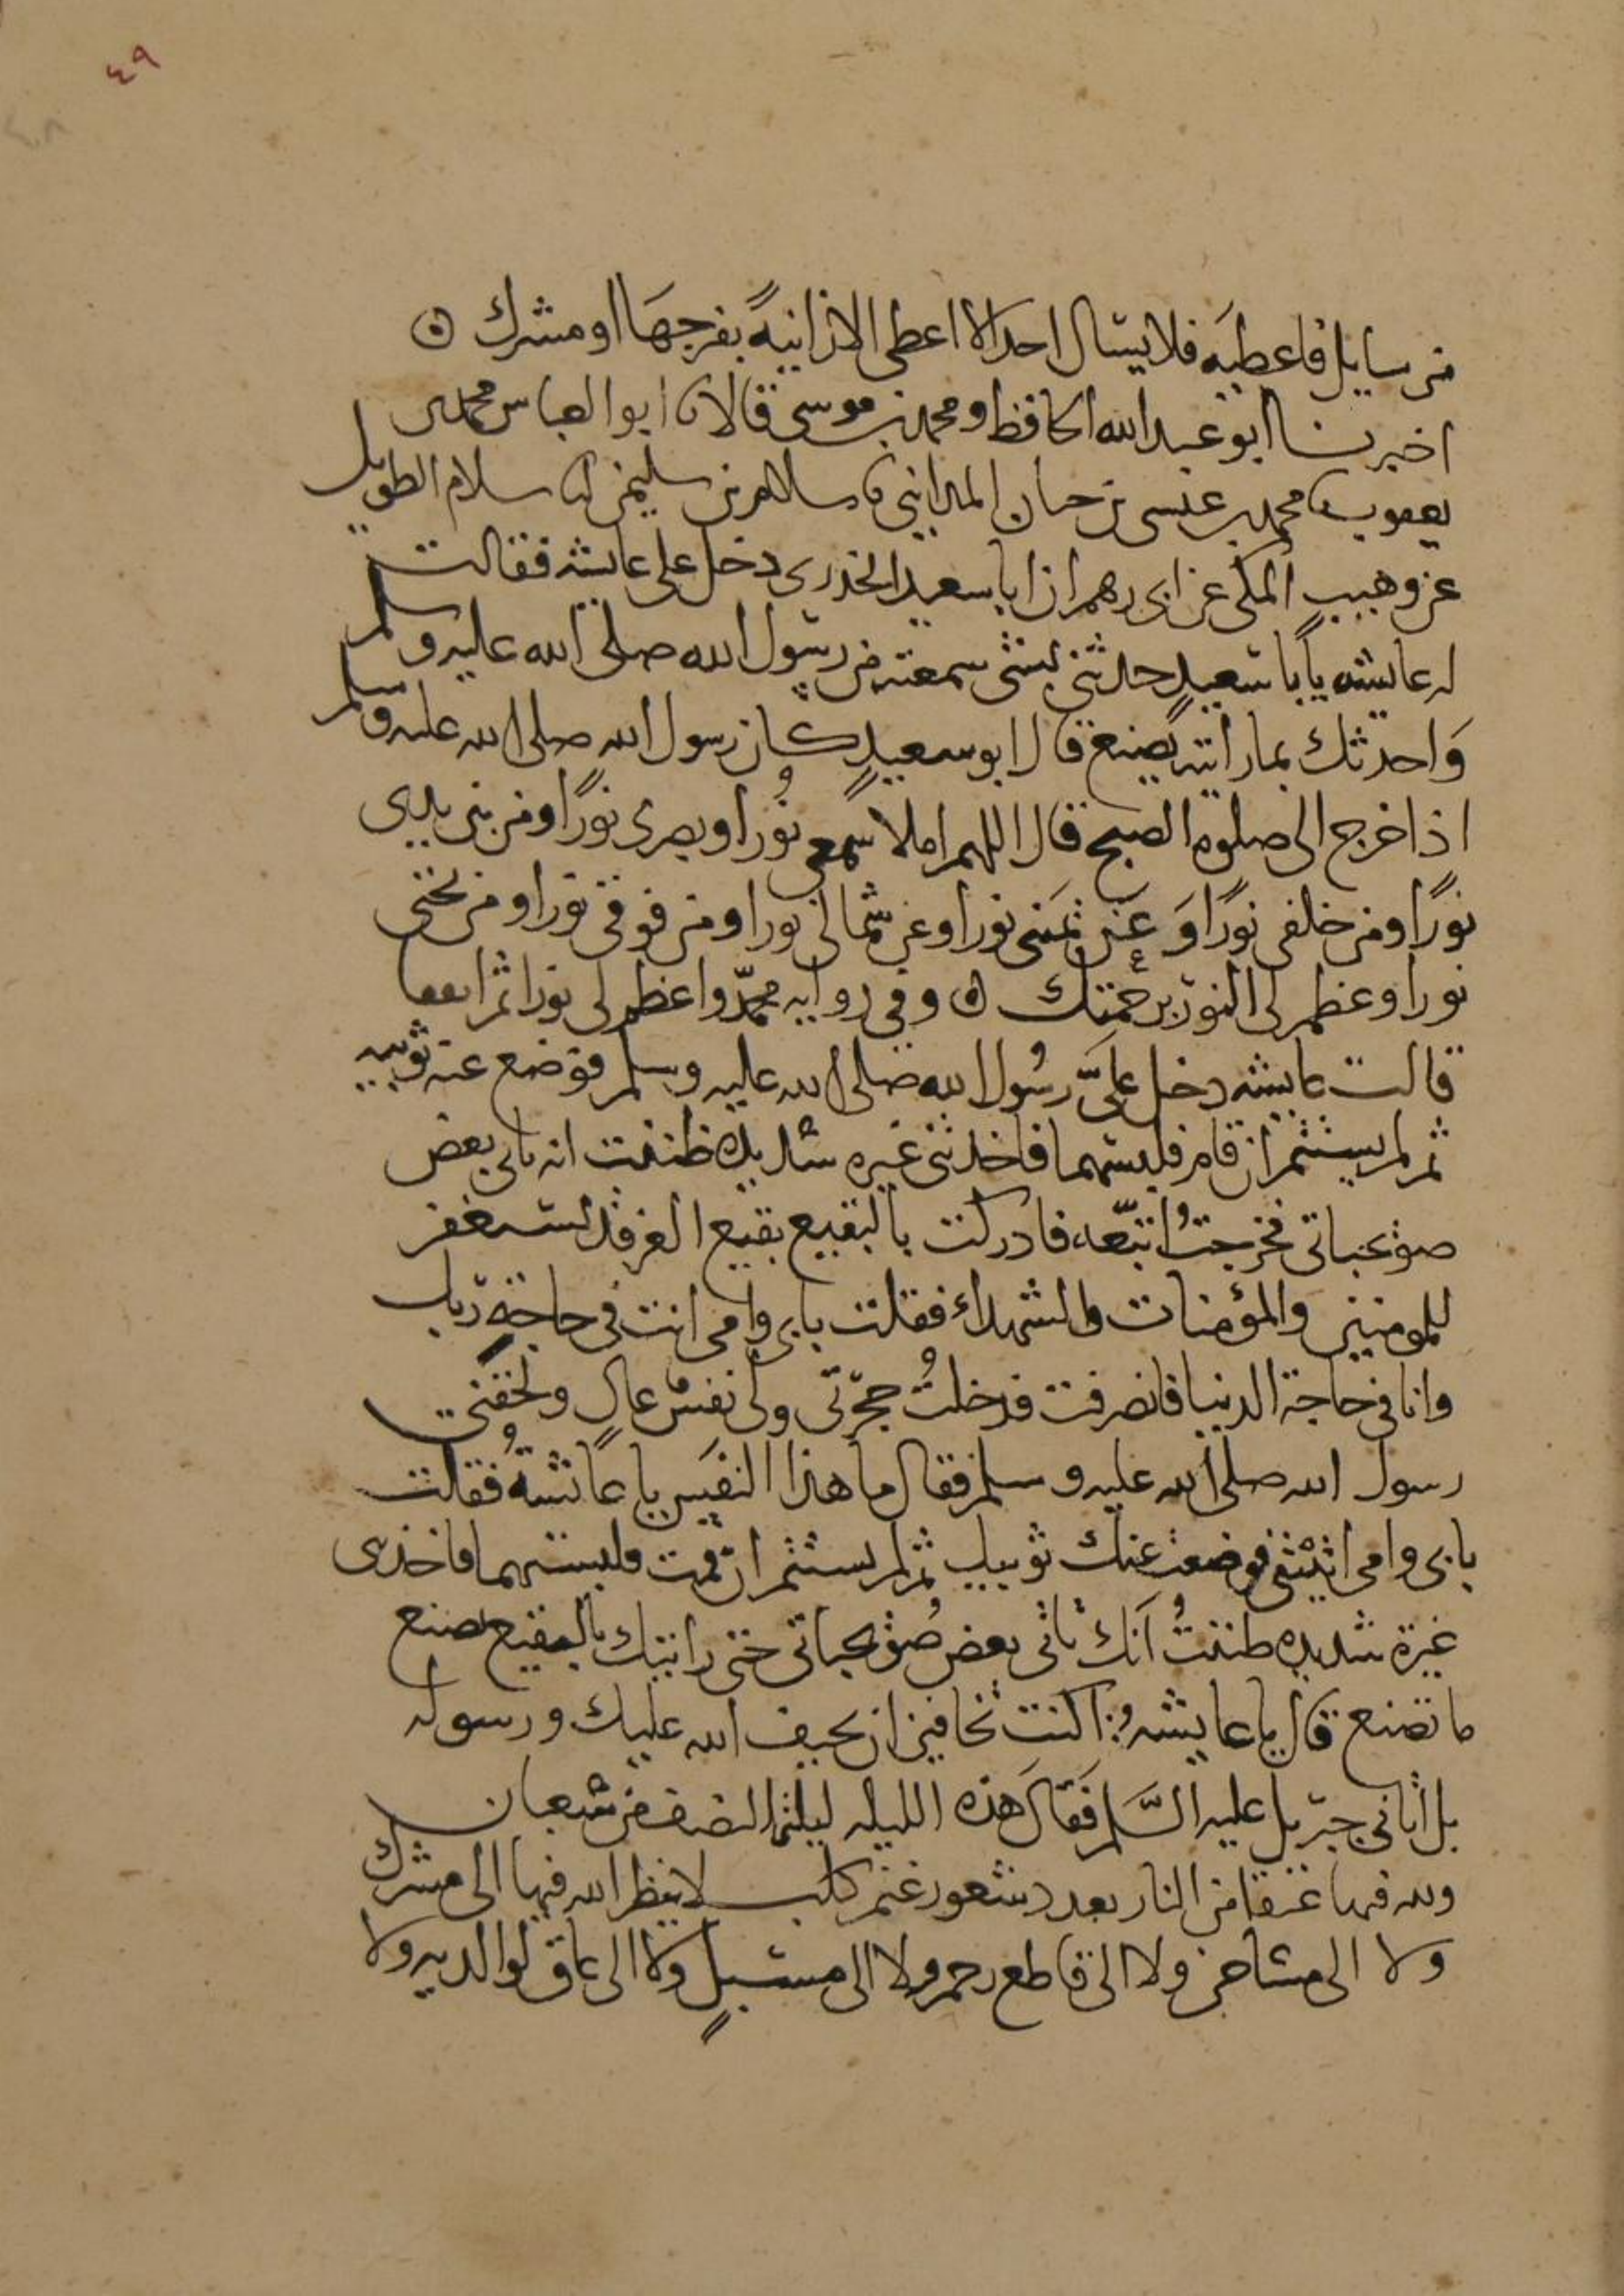 ٤٩
من سايل فاعطيه فلا يسال احد الا اعطى الا زانيةً بفرجها او مشرك ۞
اخبرنا ابو عبد الله الحافظ و محمد بن موسى قالا نا ابو العباس محمد بن
يعقوب نا محمد بن عيسى بن حيان المدايني نا سلام بن سليمن انا سلام الطويل
عن وهيب المكي عن ابي رهم ان ابا سعيد الخدري دخل على عايشه فقالت
له عايشه يا با سعيدٍ حدثني بشي سمعته من رسول الله صلى الله عليه وسلم
وَاحدثك بما رايته يصنع قال ابو سعيدٍ كان رسول الله صلى الله عليه وسلم
اذا خرج الى صلوة الصبح قال اللهم املا سمعي نُورا وبصري نورًا ومن بين يدي
نورًا ومن خلفي نورًا وَعن يمَيني نورا وعن شمالي نورا ومن فوقي نورا ومن تحتي
نورا وعظم لي النور برحمتك ۞ وفي رواية محمدٍ واعظم لي نورا ثم اتفقا
قالت عايشه دخل عليَّ رسُول الله صلى الله عليه وسلم فوضع عنه ثوبيه
ثم لم يستتم ان قام فلبسهما فاخذتني غيره شديده ظننت انه ياتي بعض
صويحباتي فخرجتُ اتبعه فادركته بالبقيع بقيع الغرقد يستغفر
للمومنين والمؤمنات والشهداء فقلت بابي وامي انت في حاجةِ ربك
وانا في حاجة الدنيا فانصرفت فدخلتُ حجرتي ولي نفسٌ عالٍ ولحقني
رسول الله صلى الله عليه وسلم فقال ما هذا النفَس يا عائشةُ فقلت
بابي وامي اتيتني فوضعت عنك ثوبيك ثم لم تستتم ان قمت فلبستهما فاخذتني
غيرة شديده ظننتُ اَنك تاتي بعض صُويحباتي حتى رايتك بالبقيع تصنع
ما تصنع قال يا عايشهُ اكنت تخافين ان يحيف الله عليك ورسوله
بل اتاني جبريل عليه السَّلم فَقالَ هذه الليله ليلة النصف من شعبان
ولله فيها عتقا من النار بعدد شعور غنم كلب لا ينظر الله فيها الى مشرك
ولا الى مشاحن ولا الى قاطع رحم ولا الى مسبلٍ ولا الى عاق لوالديه ولا